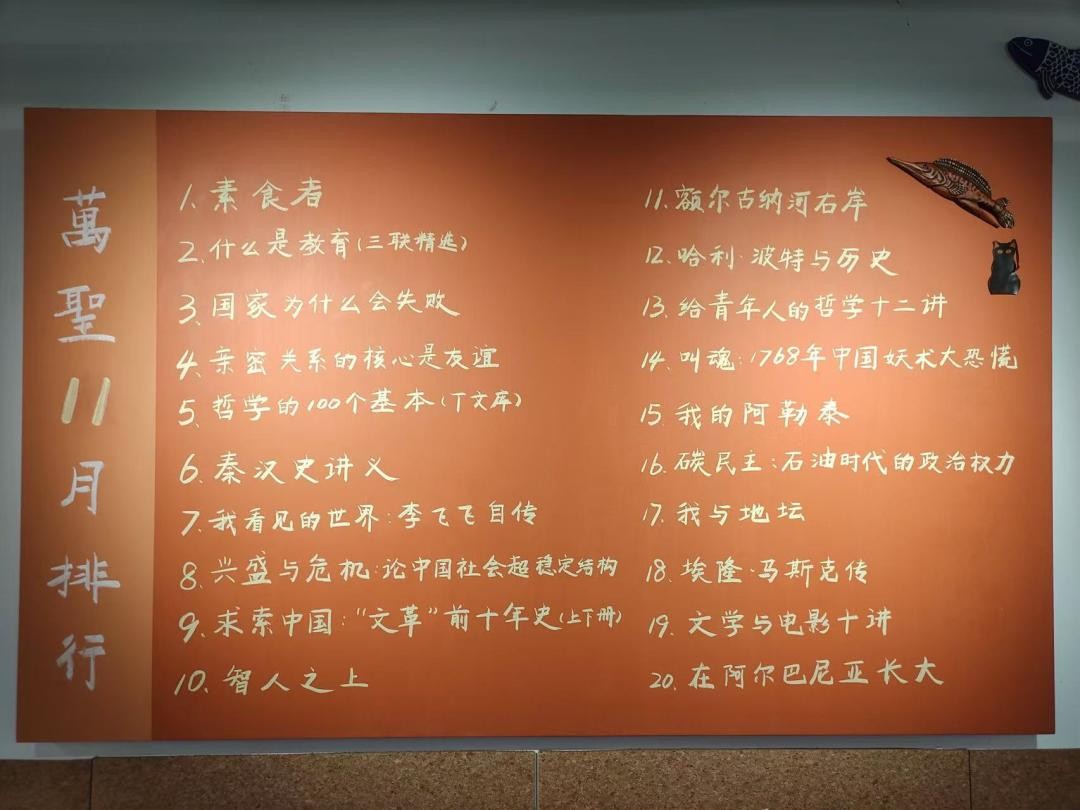 萬聖11月排行
1. 素食者
2. 什么是教育(三联精选)
3. 国家为什么会失败
4. 亲密关系的核心是友谊
5. 哲学的100个基本(丁文库)
6. 秦汉史讲义
7. 我看见的世界:李飞飞自传
8. 兴盛与危机:论中国社会超稳定结构
9. 求索中国:“文革”前十年史(上下册)
10. 智人之上
11. 额尔古纳河右岸
12. 哈利·波特与历史
13. 给青年人的哲学十二讲
14. 叫魂:1768年中国妖术大恐慌
15. 我的阿勒泰
16. 碳民主:石油时代的政治权力
17. 我与地坛
18. 埃隆·马斯克传
19. 文学与电影十讲
20. 在阿尔巴尼亚长大